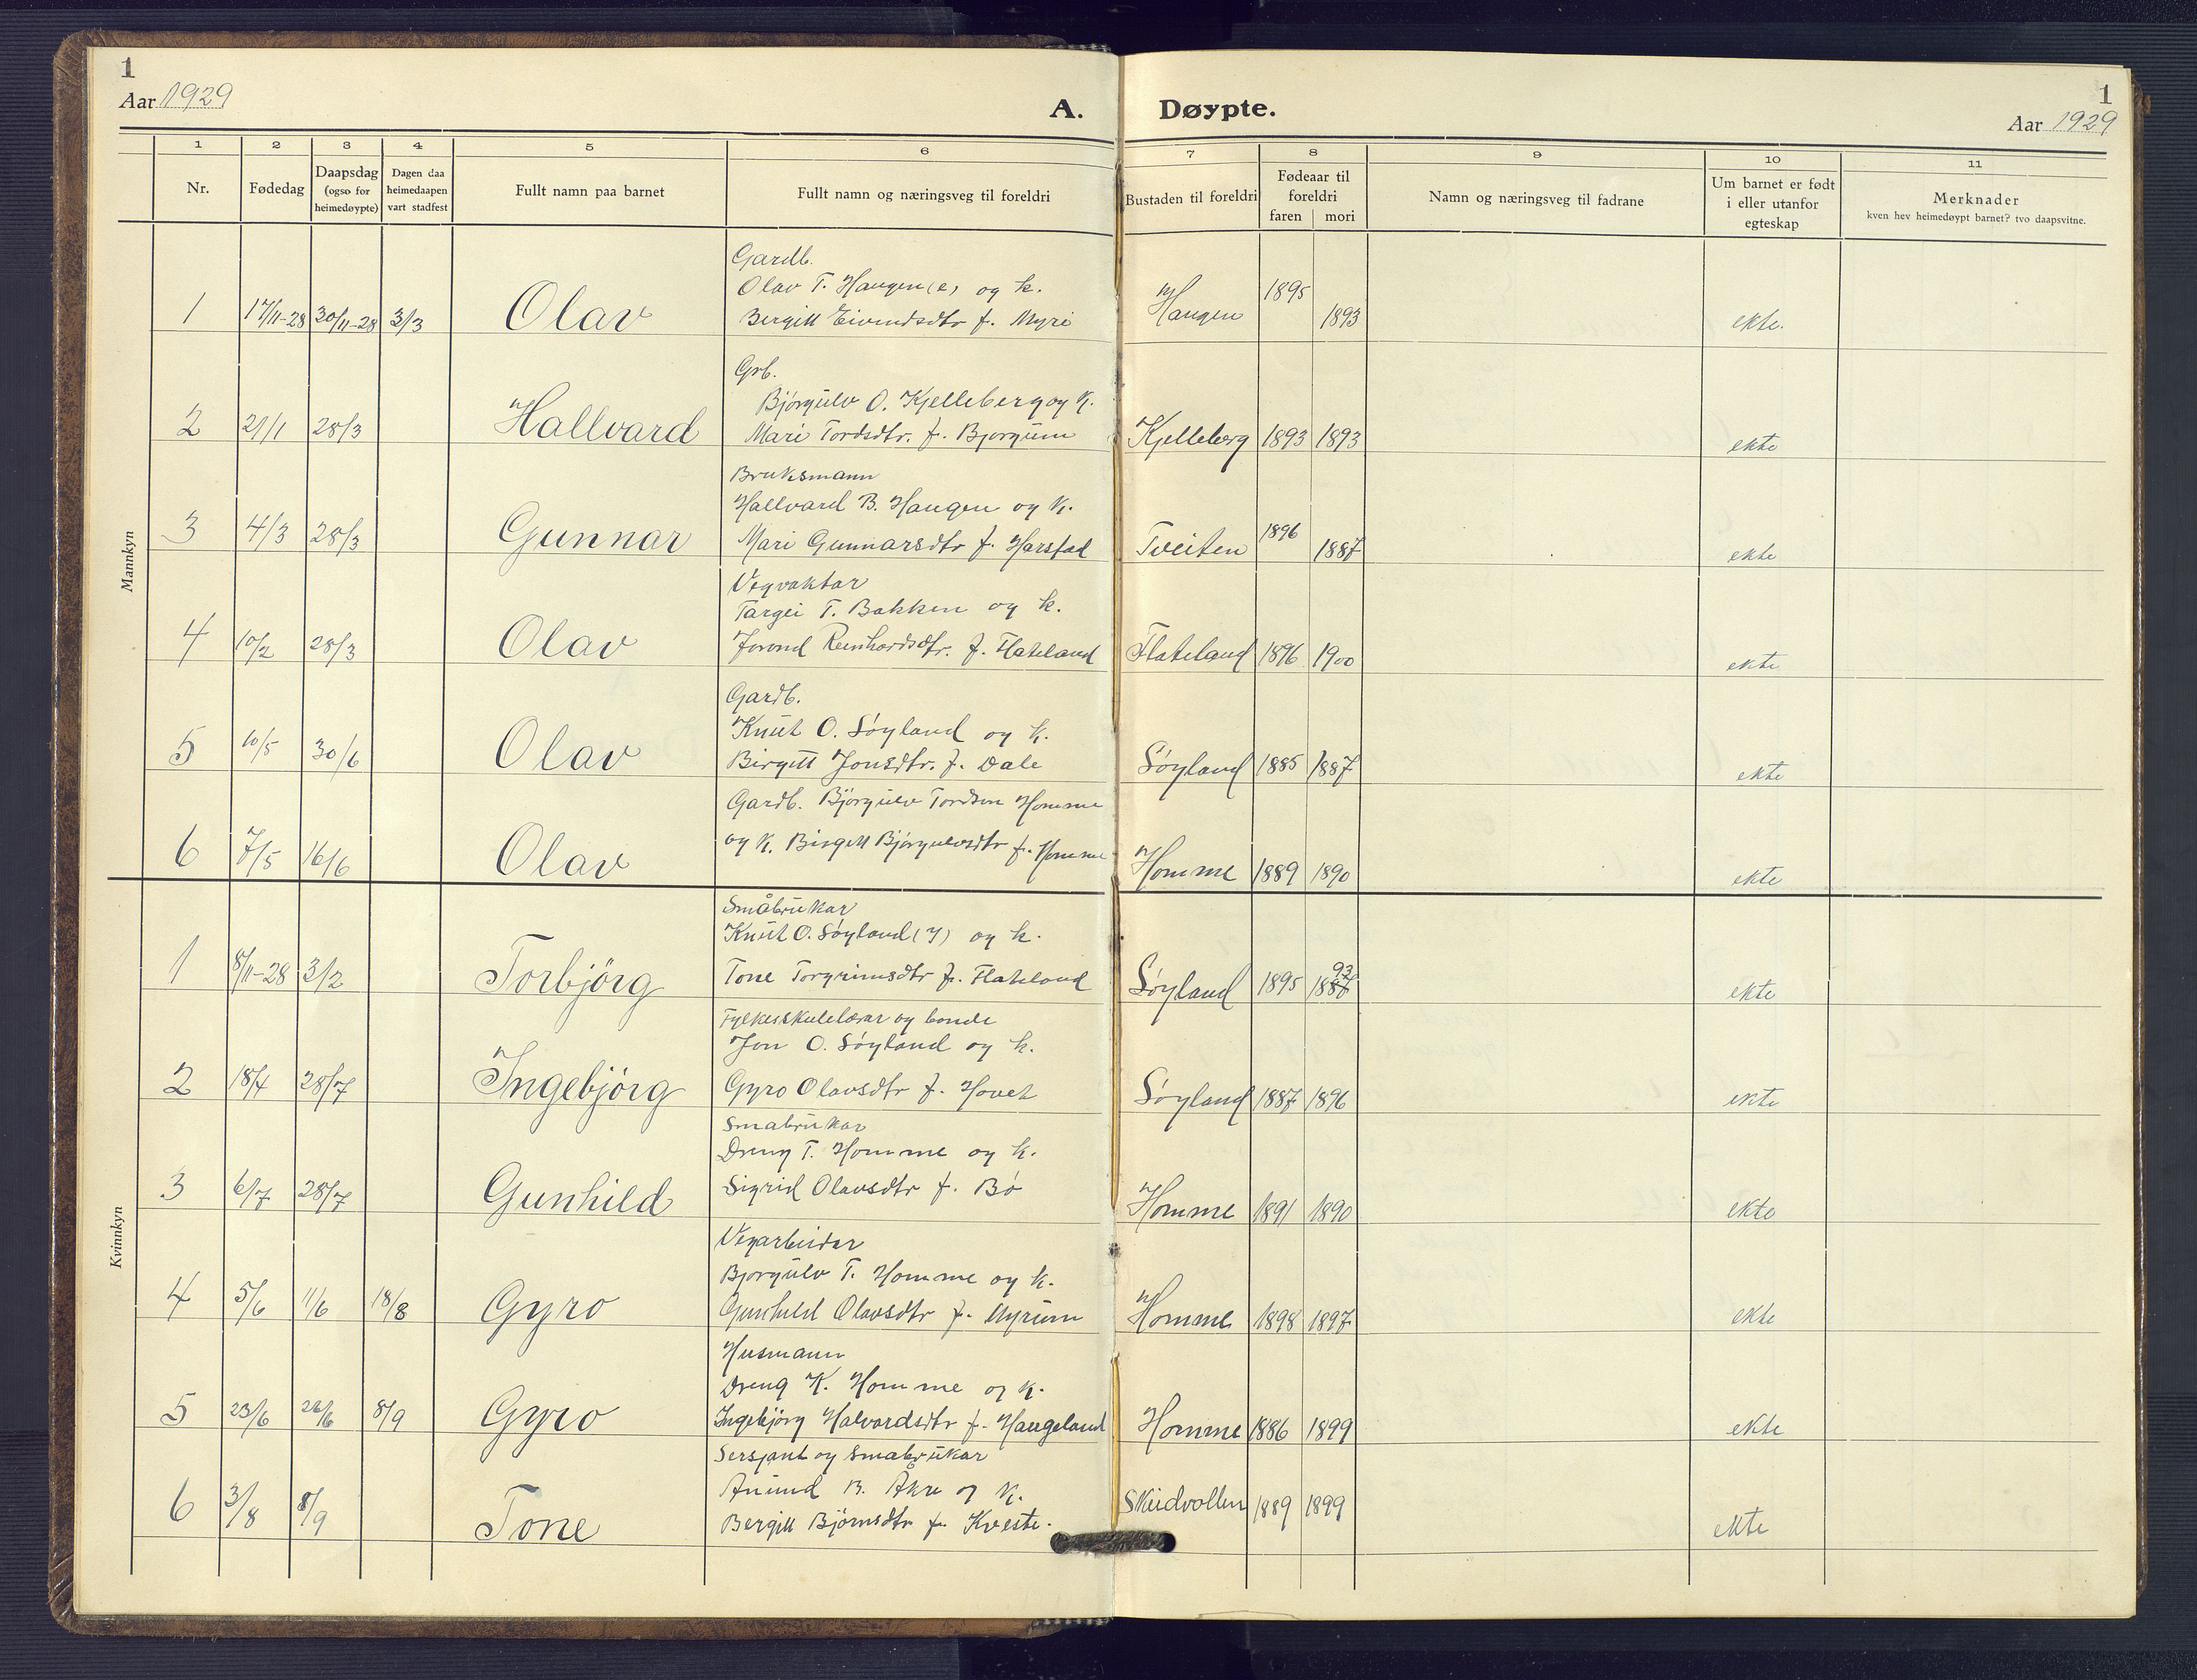 1
Aar 1929
A. Døypte.
1
Aar 1929
1 2 3 4 5 6 7 8 9 10 11
Nr.
Fødedag
Daapsdag (ogso for heimedøypte)
Dagen daa heimedaapen vart stadfest
Fullt namn paa barnet
Fullt namn og næringsveg til foreldri
Bustaden til foreldri
Fødeaar til foreldri
faren mori
Namn og næringsveg til fadrane
Um barnet er født i eller utanfor egteskap
Merknader
kven hev heimedøypt barnet? tvo daapsvitne.
Mannkyn
Gardb.
Olav T. Haugen (e) og k.
1 17/11-28 30/11-28 3/3 Olav Bergitt Eivindsdtr f. Myri Haugen 1895 1893 ekte.
Grb.
Bjørgulv O. Kjelleberg og k.
2 21/1 28/3 Hallvard Mari Tordsdtr. f. Bjorgum Kjelleberg 1893 1893 ekte
Bruksmann
Hallvard B. Haugen og k.
3 4/3 28/3 Gunnar Mari Gunnarsdtr f. Harstad Tveiten 1896 1887 ekte
Vegvaktar
Targei T. Bakken og k.
4 10/2 28/3 Olav Jorond Reinhardsdtr. f. Flateland Flateland 1896 1900 ekte
Gardb.
Knut O. Søyland og k.
5 10/5 30/6 Olav Birgitt Jonsdtr. f. Dale Søyland 1885 1887 ekte
Gardb. Bjørgulv Tordson Homme
6 7/5 16/6 Olav og k. Birgitt Bjørgulvsdtr f. Homme Homme 1889 1890 ekte
Kvinnkyn
Småbrukar
Knut O. Søyland (y) og k.
93
1 8/11-28 3/2 Torbjörg Tone Torgrimsdtr f. Flateland Søyland 1895 1887 ekte
Fylkesskulelærar og bonde
Jon O. Søyland og k.
2 18/4 28/7 Ingebjörg Gyro Olavsdtr f. Hovet Søyland 1887 1896 ekte
Småbrukar
Dreng T. Homme og k.
3 6/7 28/7 Gunhild Sigrid Olavsdtr f. Bø Homme 1891 1890 ekte
Vegarbeidar
Bjorgulv T. Homme og k.
4 5/6 11/6 18/8 Gyro Gunhild Olavsdtr f. Myrum Homme 1898 1897 ekte
Husmann
Dreng K. Homme og k.
5 23/6 26/6 8/9 Gyro Ingebjörg Halvardsdtr f. Haugeland Homme 1886 1899 ekte
Sersjant og småbrukar
Anund B. Åkre og k.
6 3/8 8/9 Tone Bergitt Bjørnsdtr f. Kveste. Skudvollen 1889 1899 ekte